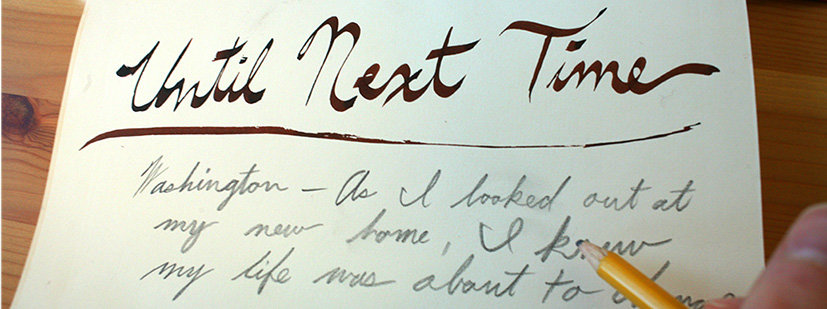 Until Next Time
Washington – As I looked out at
my new home, I knew
my life was about to